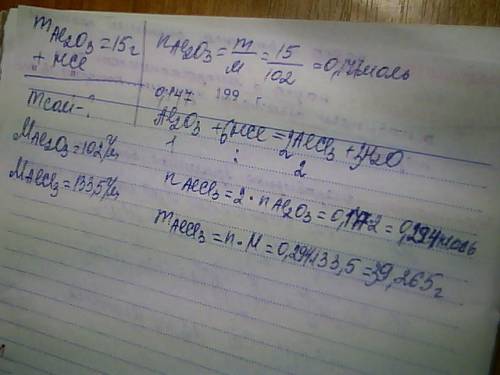 mAl₂O₃ = 15г
+ HCl
mсоли - ?
MAl₂O₃ = 102 г/м
MAlCl₃ = 133,5 г/м
nAl₂O₃ = m/M = 15/102 = 0,147моль
0,147
Al₂O₃ + 6HCl = 2AlCl₃ + 3H₂O
1 : 2
2
nAlCl₃ = 2 · nAl₂O₃ = 0,147·2 = 0,294моль
mAlCl₃ = n · M = 0,294·133,5 = 39,265г